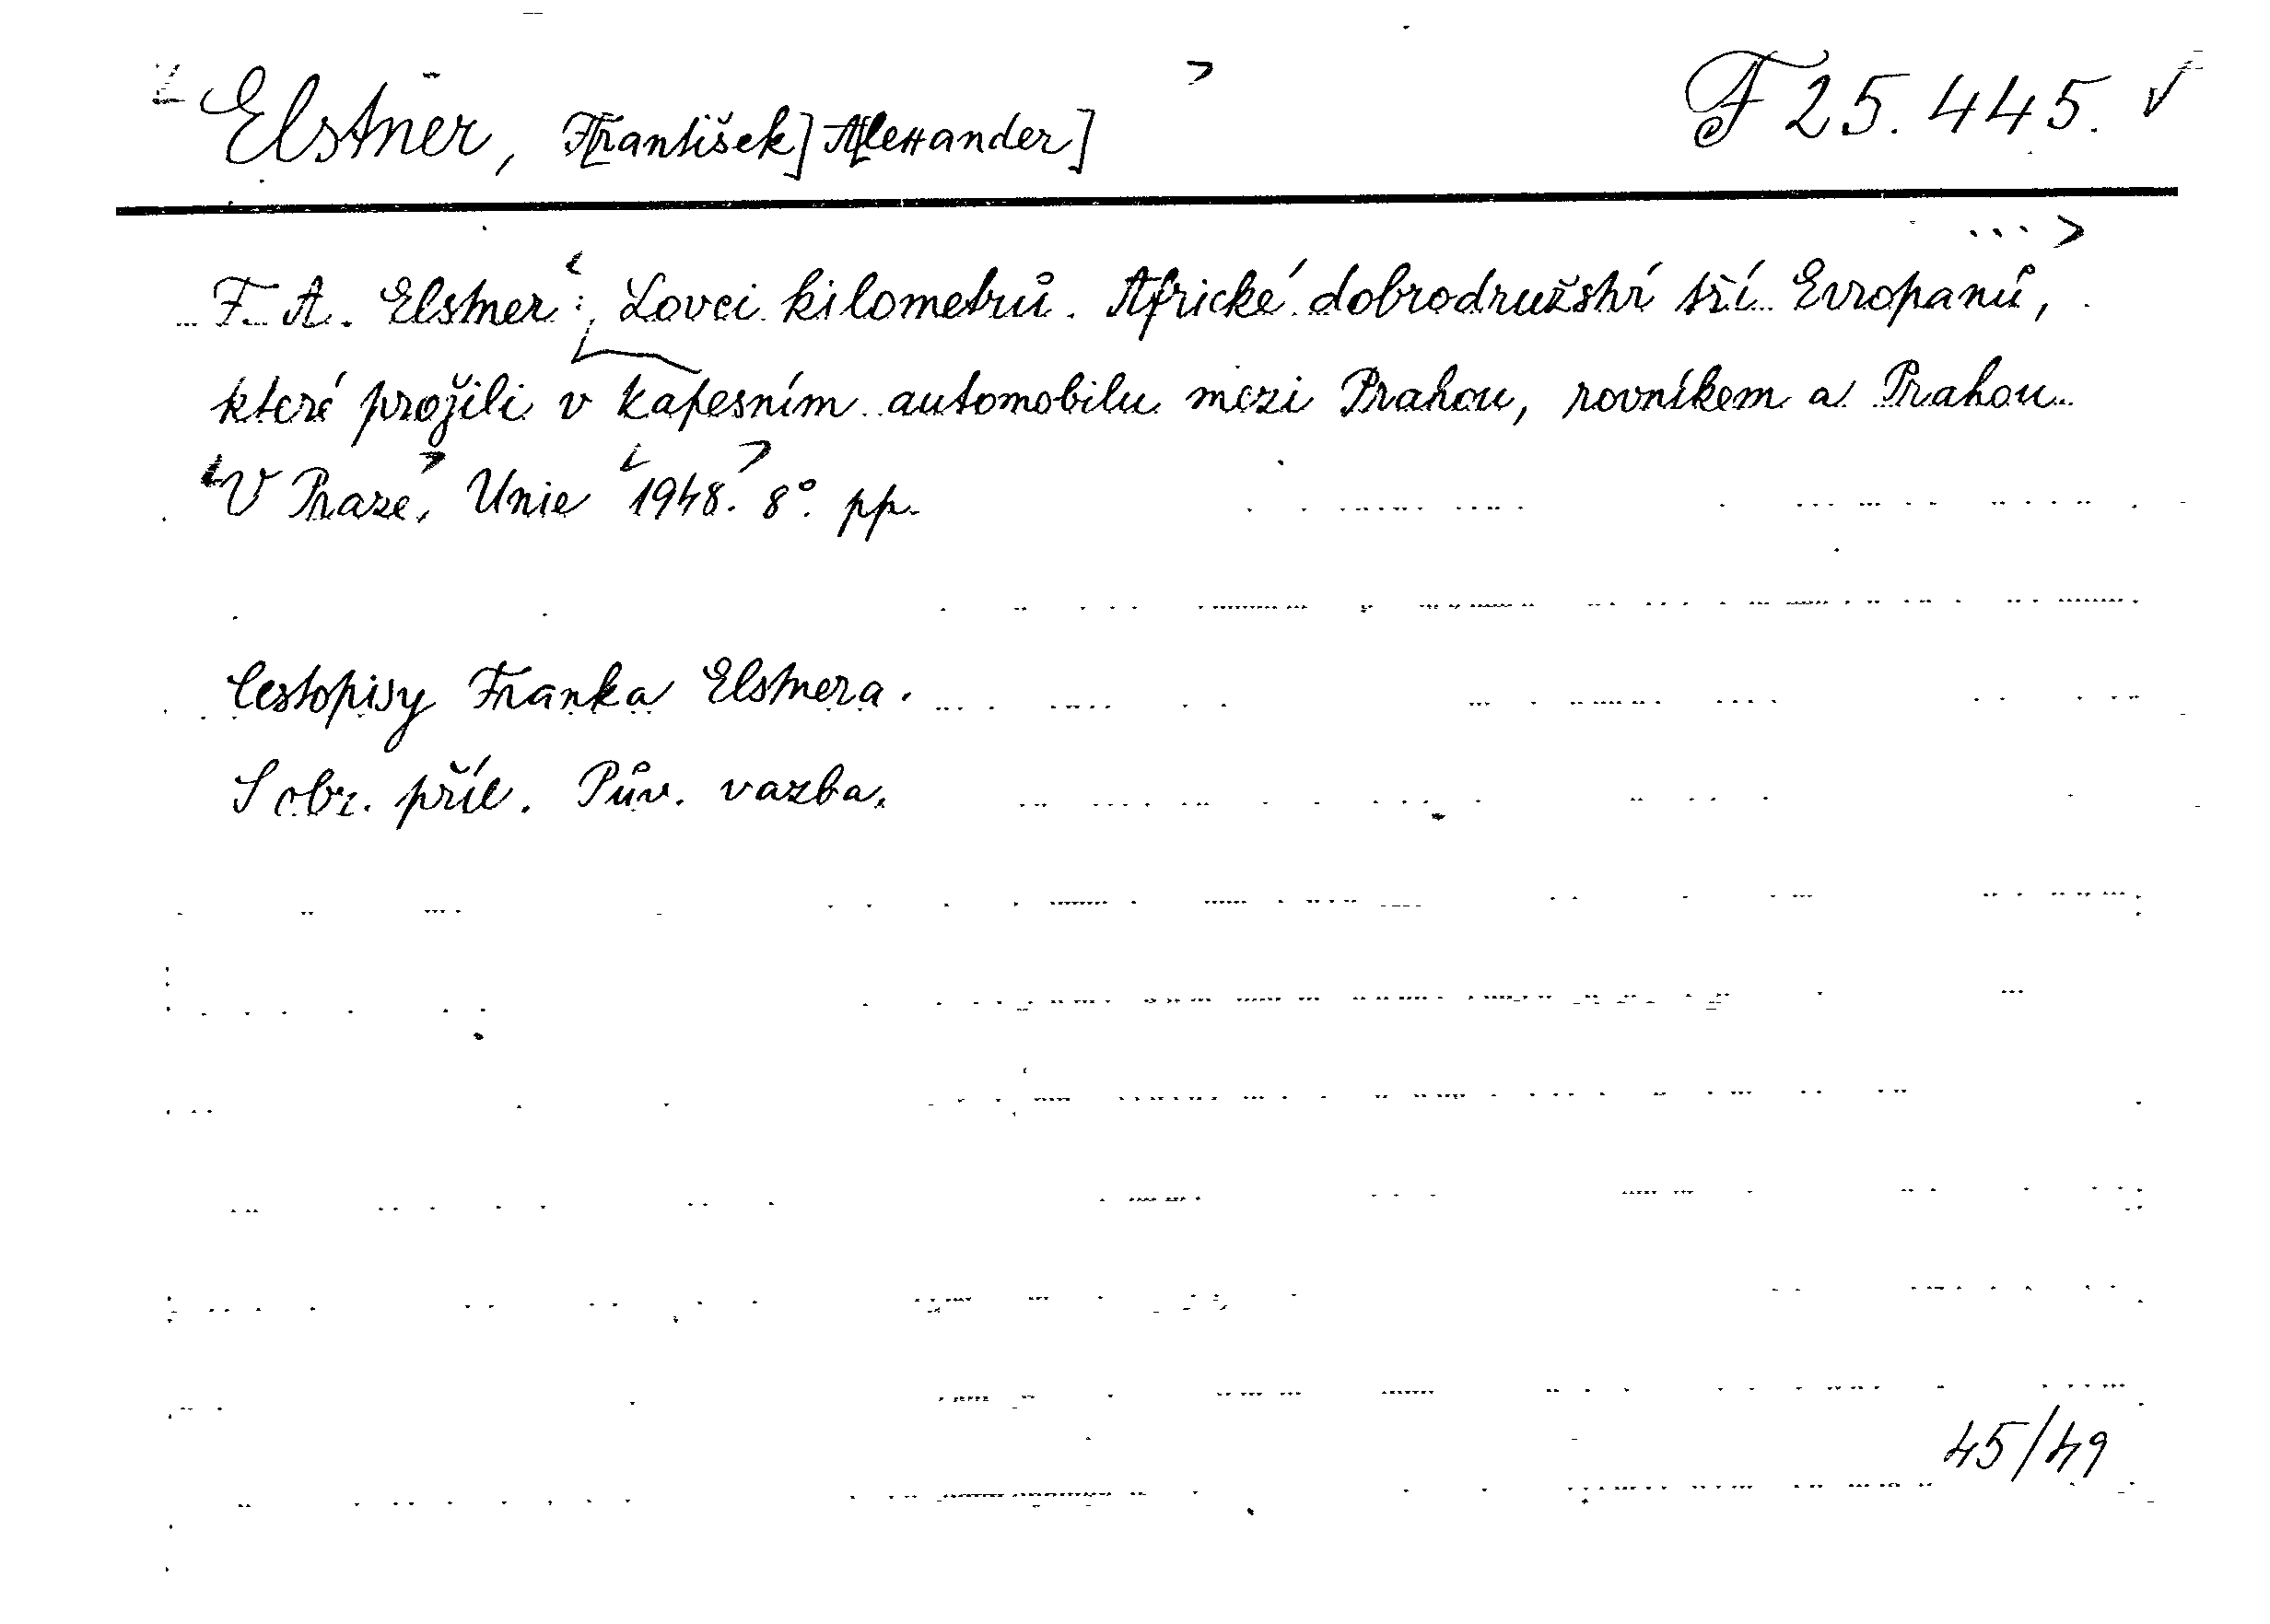 Elstner, F[rantišek] A[lexander] F 25.445.
F. A. Elstner: Lovci kilometrů. Africké dobrodružství tří Evropanů,
které prožili v kapesním automobilu mezi Prahou, rovníkem a Prahou.
V Praze, Unie 1948. 8°. pp.
Cestopisy Franka Elstnera.
S obr. příl. Pův. vazba.
45/49